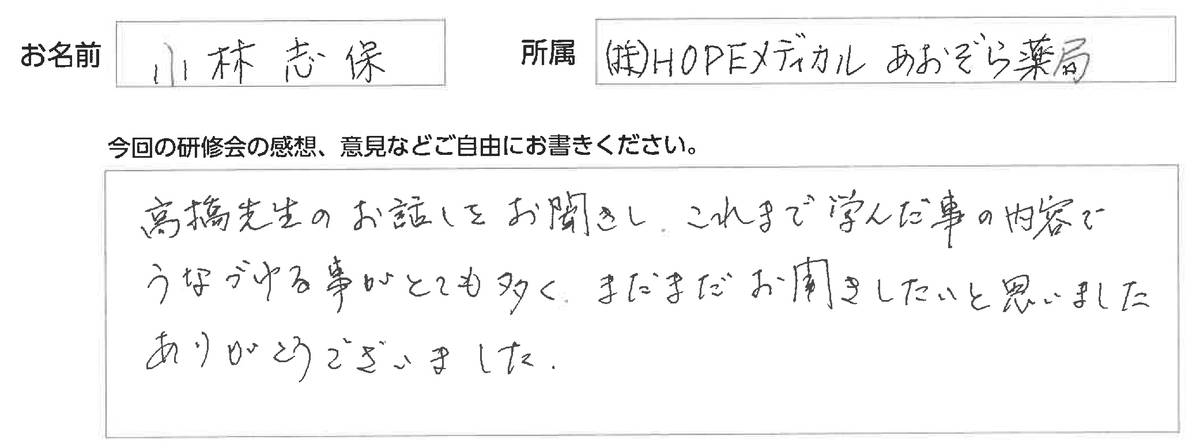 お名前 小林志保 所属 (株)HOPEメディカル あおぞら薬局
今回の研修会の感想、意見などご自由にお書きください。
高橋先生のお話しをお聞きし、これまで学んだ事の内容で
うなづける事がとても多く、まだまだお聞きしたいと思いました
ありがとうございました.